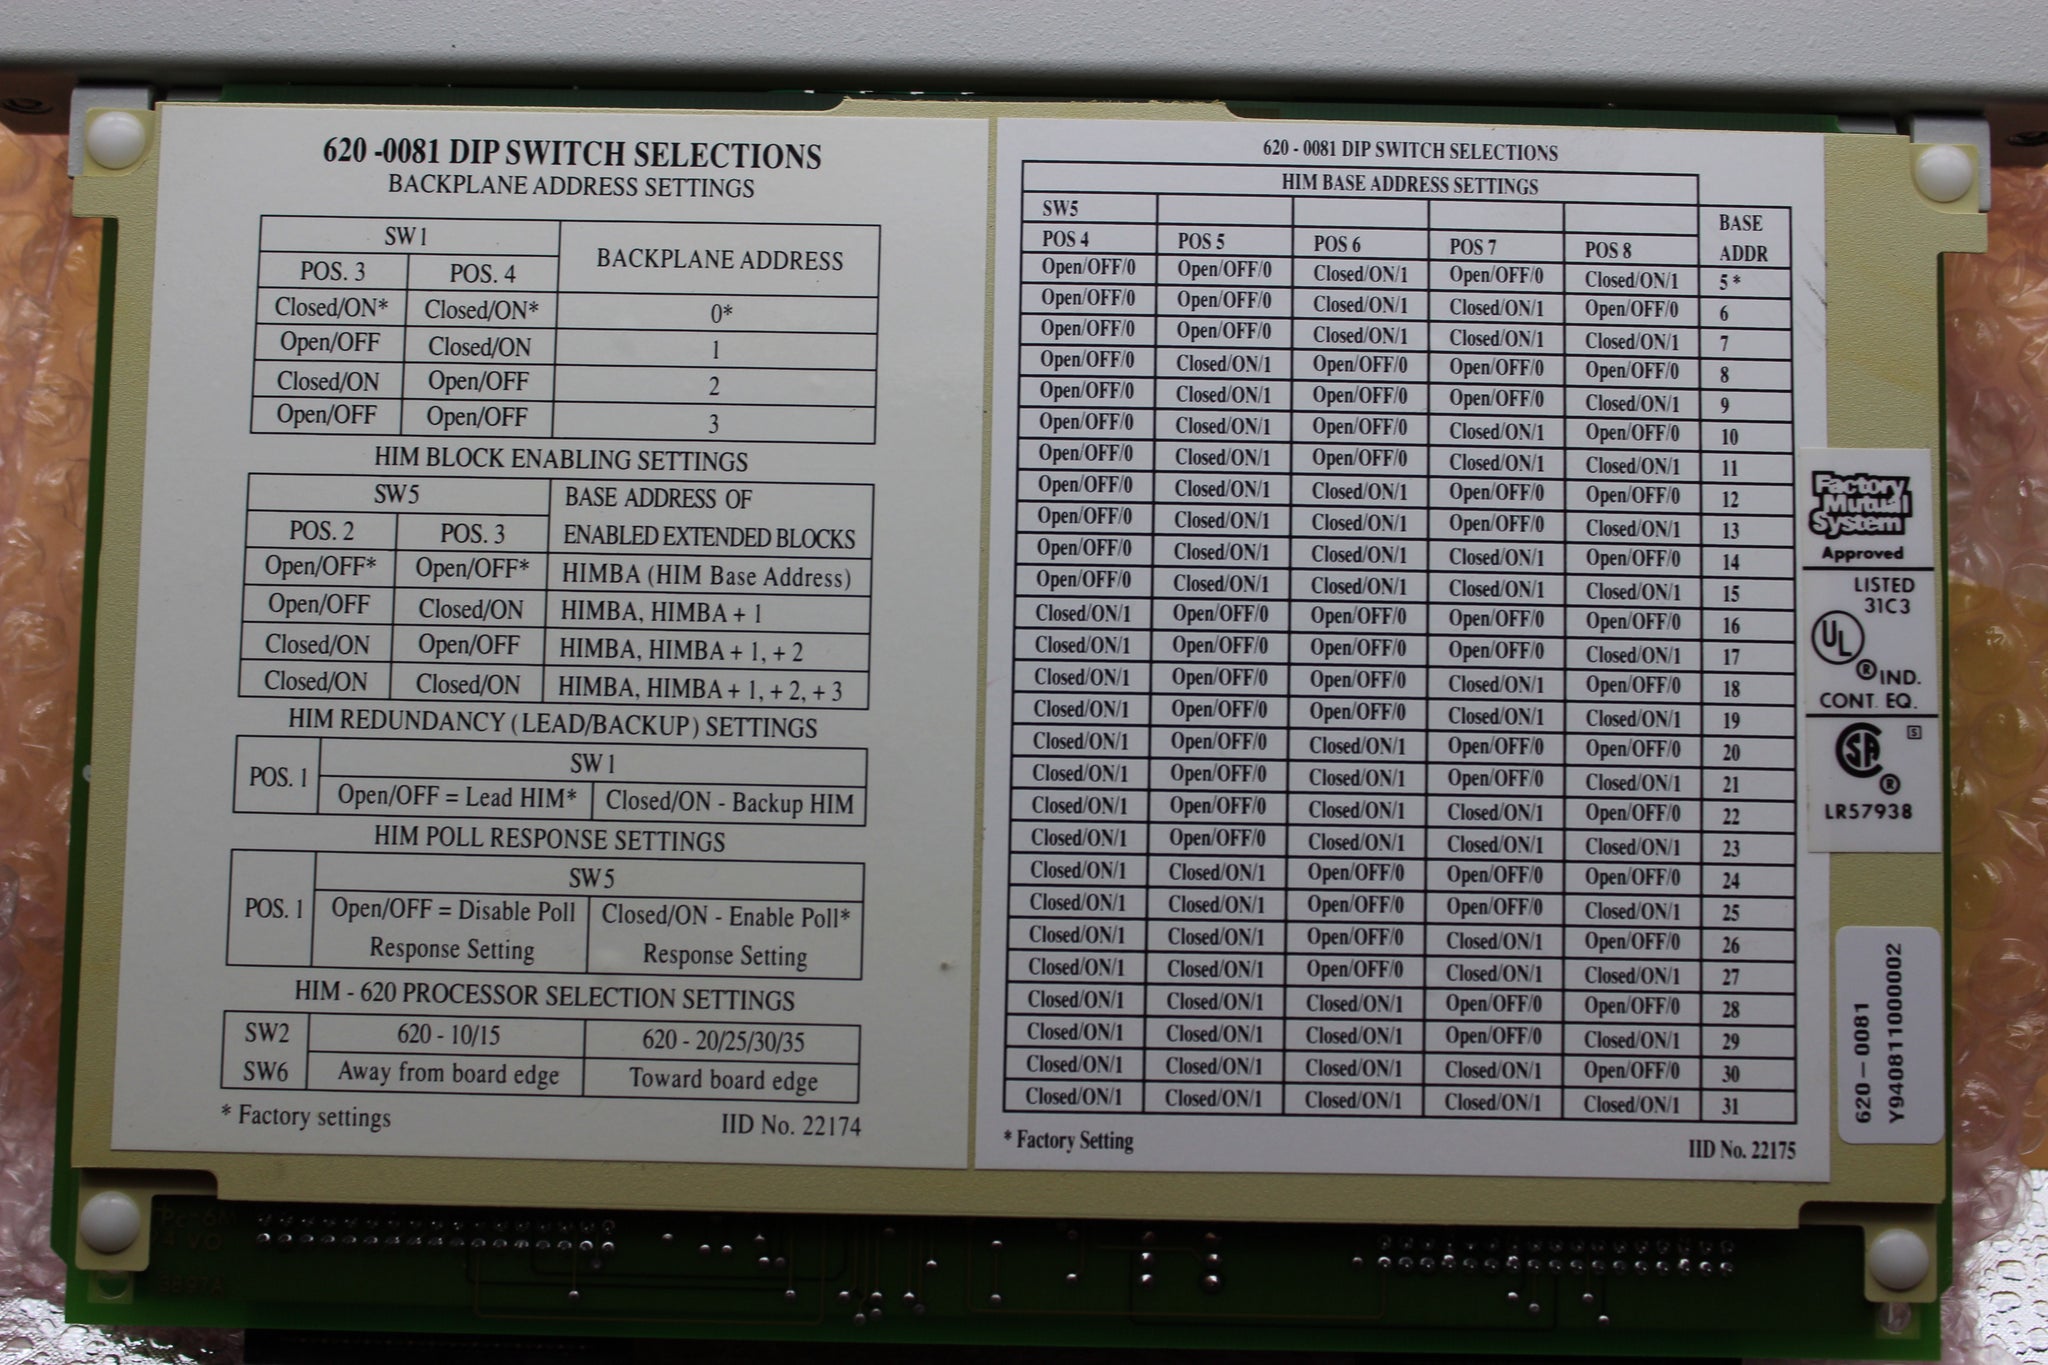 620 -0081 DIP SWITCH SELECTIONS
BACKPLANE ADDRESS SETTINGS
SW1 BACKPLANE ADDRESS
POS. 3 POS. 4
Closed/ON* Closed/ON* 0*
Open/OFF Closed/ON 1
Closed/ON Open/OFF 2
Open/OFF Open/OFF 3
HIM BLOCK ENABLING SETTINGS
SW5 BASE ADDRESS OF
POS. 2 POS. 3 ENABLED EXTENDED BLOCKS
Open/OFF* Open/OFF* HIMBA (HIM Base Address)
Open/OFF Closed/ON HIMBA, HIMBA + 1
Closed/ON Open/OFF HIMBA, HIMBA + 1, + 2
Closed/ON Closed/ON HIMBA, HIMBA + 1, + 2, + 3
HIM REDUNDANCY (LEAD/BACKUP) SETTINGS
POS. 1 SW1
Open/OFF = Lead HIM* Closed/ON - Backup HIM
HIM POLL RESPONSE SETTINGS
POS. 1 SW5
Open/OFF = Disable Poll Closed/ON - Enable Poll*
Response Setting Response Setting
HIM - 620 PROCESSOR SELECTION SETTINGS
SW2 620 - 10/15 620 - 20/25/30/35
SW6 Away from board edge Toward board edge
* Factory settings IID No. 22174
620 - 0081 DIP SWITCH SELECTIONS
HIM BASE ADDRESS SETTINGS
SW5 BASE
POS 4 POS 5 POS 6 POS 7 POS 8 ADDR
Open/OFF/0 Open/OFF/0 Closed/ON/1 Open/OFF/0 Closed/ON/1 5 *
Open/OFF/0 Open/OFF/0 Closed/ON/1 Closed/ON/1 Open/OFF/0 6
Open/OFF/0 Open/OFF/0 Closed/ON/1 Closed/ON/1 Closed/ON/1 7
Open/OFF/0 Closed/ON/1 Open/OFF/0 Open/OFF/0 Open/OFF/0 8
Open/OFF/0 Closed/ON/1 Open/OFF/0 Open/OFF/0 Closed/ON/1 9
Open/OFF/0 Closed/ON/1 Open/OFF/0 Closed/ON/1 Open/OFF/0 10
Open/OFF/0 Closed/ON/1 Open/OFF/0 Closed/ON/1 Closed/ON/1 11
Open/OFF/0 Closed/ON/1 Closed/ON/1 Open/OFF/0 Open/OFF/0 12
Open/OFF/0 Closed/ON/1 Closed/ON/1 Open/OFF/0 Closed/ON/1 13
Open/OFF/0 Closed/ON/1 Closed/ON/1 Closed/ON/1 Open/OFF/0 14
Open/OFF/0 Closed/ON/1 Closed/ON/1 Closed/ON/1 Closed/ON/1 15
Closed/ON/1 Open/OFF/0 Open/OFF/0 Open/OFF/0 Open/OFF/0 16
Closed/ON/1 Open/OFF/0 Open/OFF/0 Open/OFF/0 Closed/ON/1 17
Closed/ON/1 Open/OFF/0 Open/OFF/0 Closed/ON/1 Open/OFF/0 18
Closed/ON/1 Open/OFF/0 Open/OFF/0 Closed/ON/1 Closed/ON/1 19
Closed/ON/1 Open/OFF/0 Closed/ON/1 Open/OFF/0 Open/OFF/0 20
Closed/ON/1 Open/OFF/0 Closed/ON/1 Open/OFF/0 Closed/ON/1 21
Closed/ON/1 Open/OFF/0 Closed/ON/1 Closed/ON/1 Open/OFF/0 22
Closed/ON/1 Open/OFF/0 Closed/ON/1 Closed/ON/1 Closed/ON/1 23
Closed/ON/1 Closed/ON/1 Open/OFF/0 Open/OFF/0 Open/OFF/0 24
Closed/ON/1 Closed/ON/1 Open/OFF/0 Open/OFF/0 Closed/ON/1 25
Closed/ON/1 Closed/ON/1 Open/OFF/0 Closed/ON/1 Open/OFF/0 26
Closed/ON/1 Closed/ON/1 Open/OFF/0 Closed/ON/1 Closed/ON/1 27
Closed/ON/1 Closed/ON/1 Closed/ON/1 Open/OFF/0 Open/OFF/0 28
Closed/ON/1 Closed/ON/1 Closed/ON/1 Open/OFF/0 Closed/ON/1 29
Closed/ON/1 Closed/ON/1 Closed/ON/1 Closed/ON/1 Open/OFF/0 30
Closed/ON/1 Closed/ON/1 Closed/ON/1 Closed/ON/1 Closed/ON/1 31
* Factory Setting IID No. 22175
Factory
Mutual
System
Approved
LISTED
31C3
UL ® IND.
CONT. EQ.
SA ®
LR57938
620-0081
Y94081100002